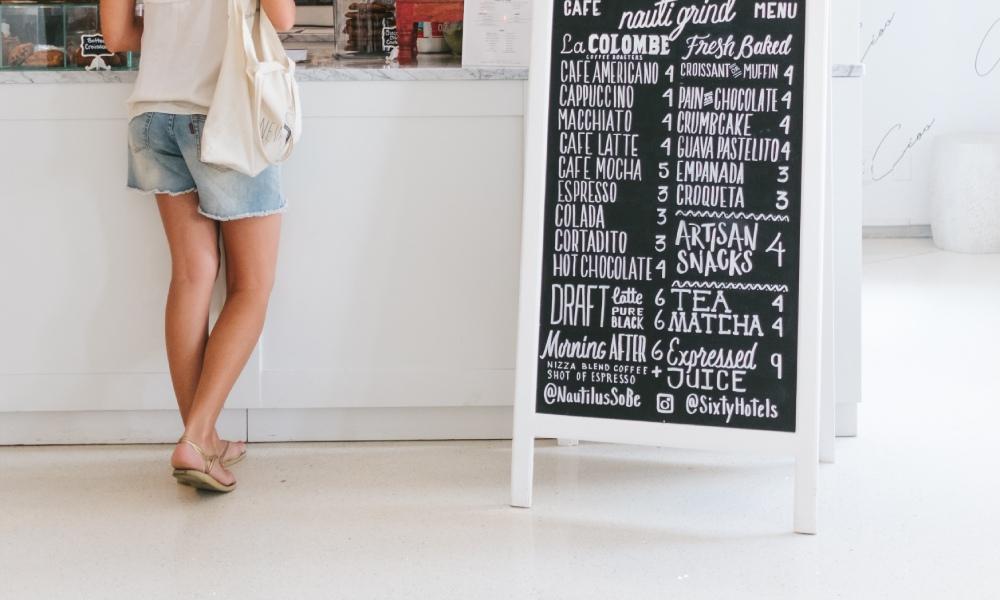 CAFE nauti grind MENU
La COLOMBE
COFFEE ROASTERS
CAFE AMERICANO 4
CAPPUCCINO 4
MACCHIATO 4
CAFE LATTE 4
CAFE MOCHA 5
ESPRESSO 3
COLADA 3
CORTADITO 3
HOT CHOCOLATE 4
DRAFT latte 6
PURE BLACK 6
Morning AFTER 6
NIZZA BLEND COFFEE +
SHOT OF ESPRESSO
Fresh Baked
CROISSANT MUFFIN 4
PAIN CHOCOLATE 4
CRUMBCAKE 4
GUAVA PASTELITO 4
EMPANADA 3
CROQUETA 3
ARTISAN
SNACKS 4
TEA 4
MATCHA 4
Expressed
JUICE 9
@NautilusSoBe @SixtyHotels
Ciao
Ciao